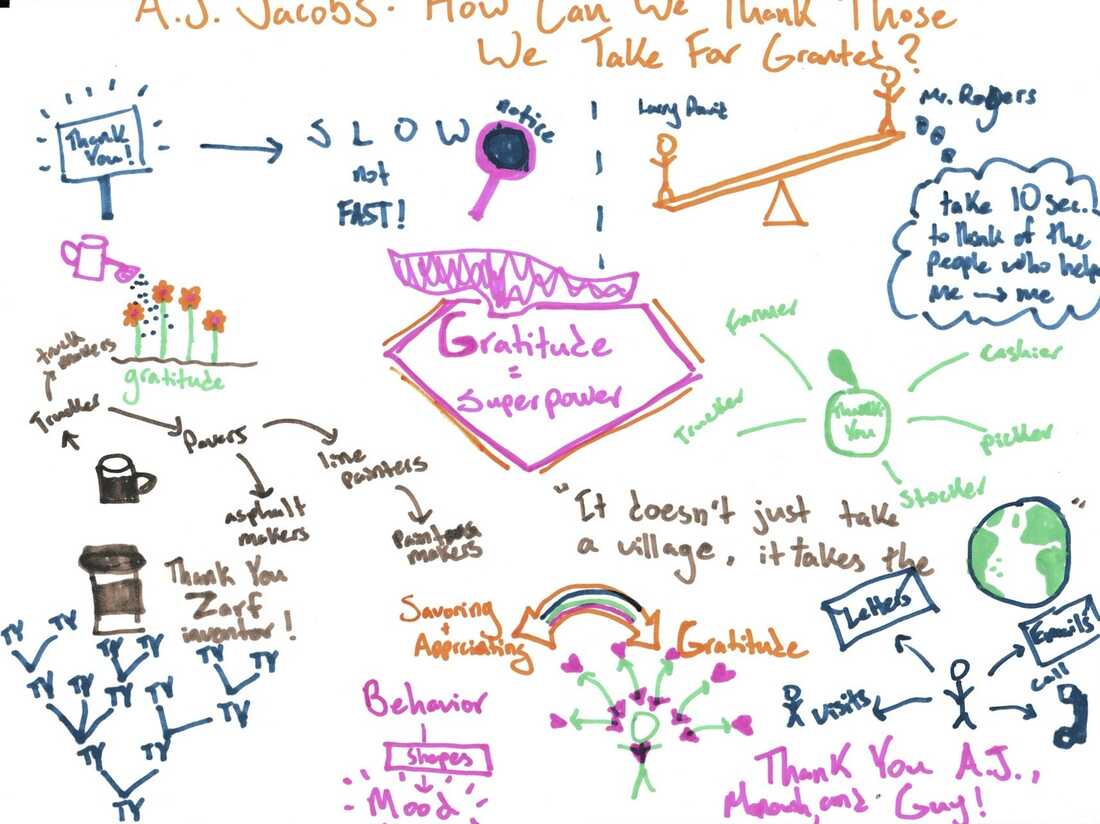 A.J. Jacobs: How Can We Thank Those
We Take For Granted?
Thank
You!
SLOW
not
FAST!
notice
Larry David
Mr. Rogers
take 10 sec.
to think of the
people who help
me → me
gratitude
truck
makers
Trucker
Pavers
line
painters
asphalt
makers
makers
Gratitude
=
superpower
farmer
cashier
Trucker
Thank
You
picker
stocker
"It doesn't just take
a village, it takes the
"
Thank You
Zarf
inventor!
Savoring
+
Appriciating
Gratitude
Letters
Emails
call
visits
TY TY TY TY TY TY
TY TY TY TY TY
TY TY
TY
Behavior
shapes
Mood
Thank You A.J.,
and Guy!